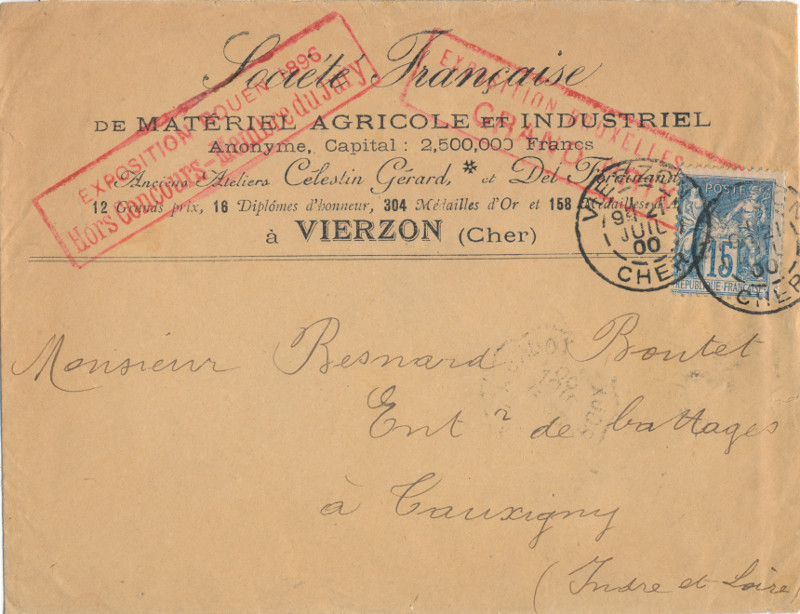 Société Française
DE MATÉRIEL AGRICOLE ET INDUSTRIEL
Anonyme, Capital : 2,500,000 Francs
Anciens Ateliers Célestin Gérard, * et Del Ferdinand
12 Grands prix, 16 Diplômes d'honneur, 304 Médailles d'Or et 158 Médailles
à VIERZON (Cher)
EXPOSITION ROUEN 1896
Hors concours - Membre du Jury
EXPOSITION BRUXELLES
GRAND
21
JUIL
00
CHER
POSTES
15
RÉPUBLIQUE FRANÇAISE
00
CHER
Monsieur Besnard Boutet
Entr de battages
à Tauxigny
(Indre et Loire)